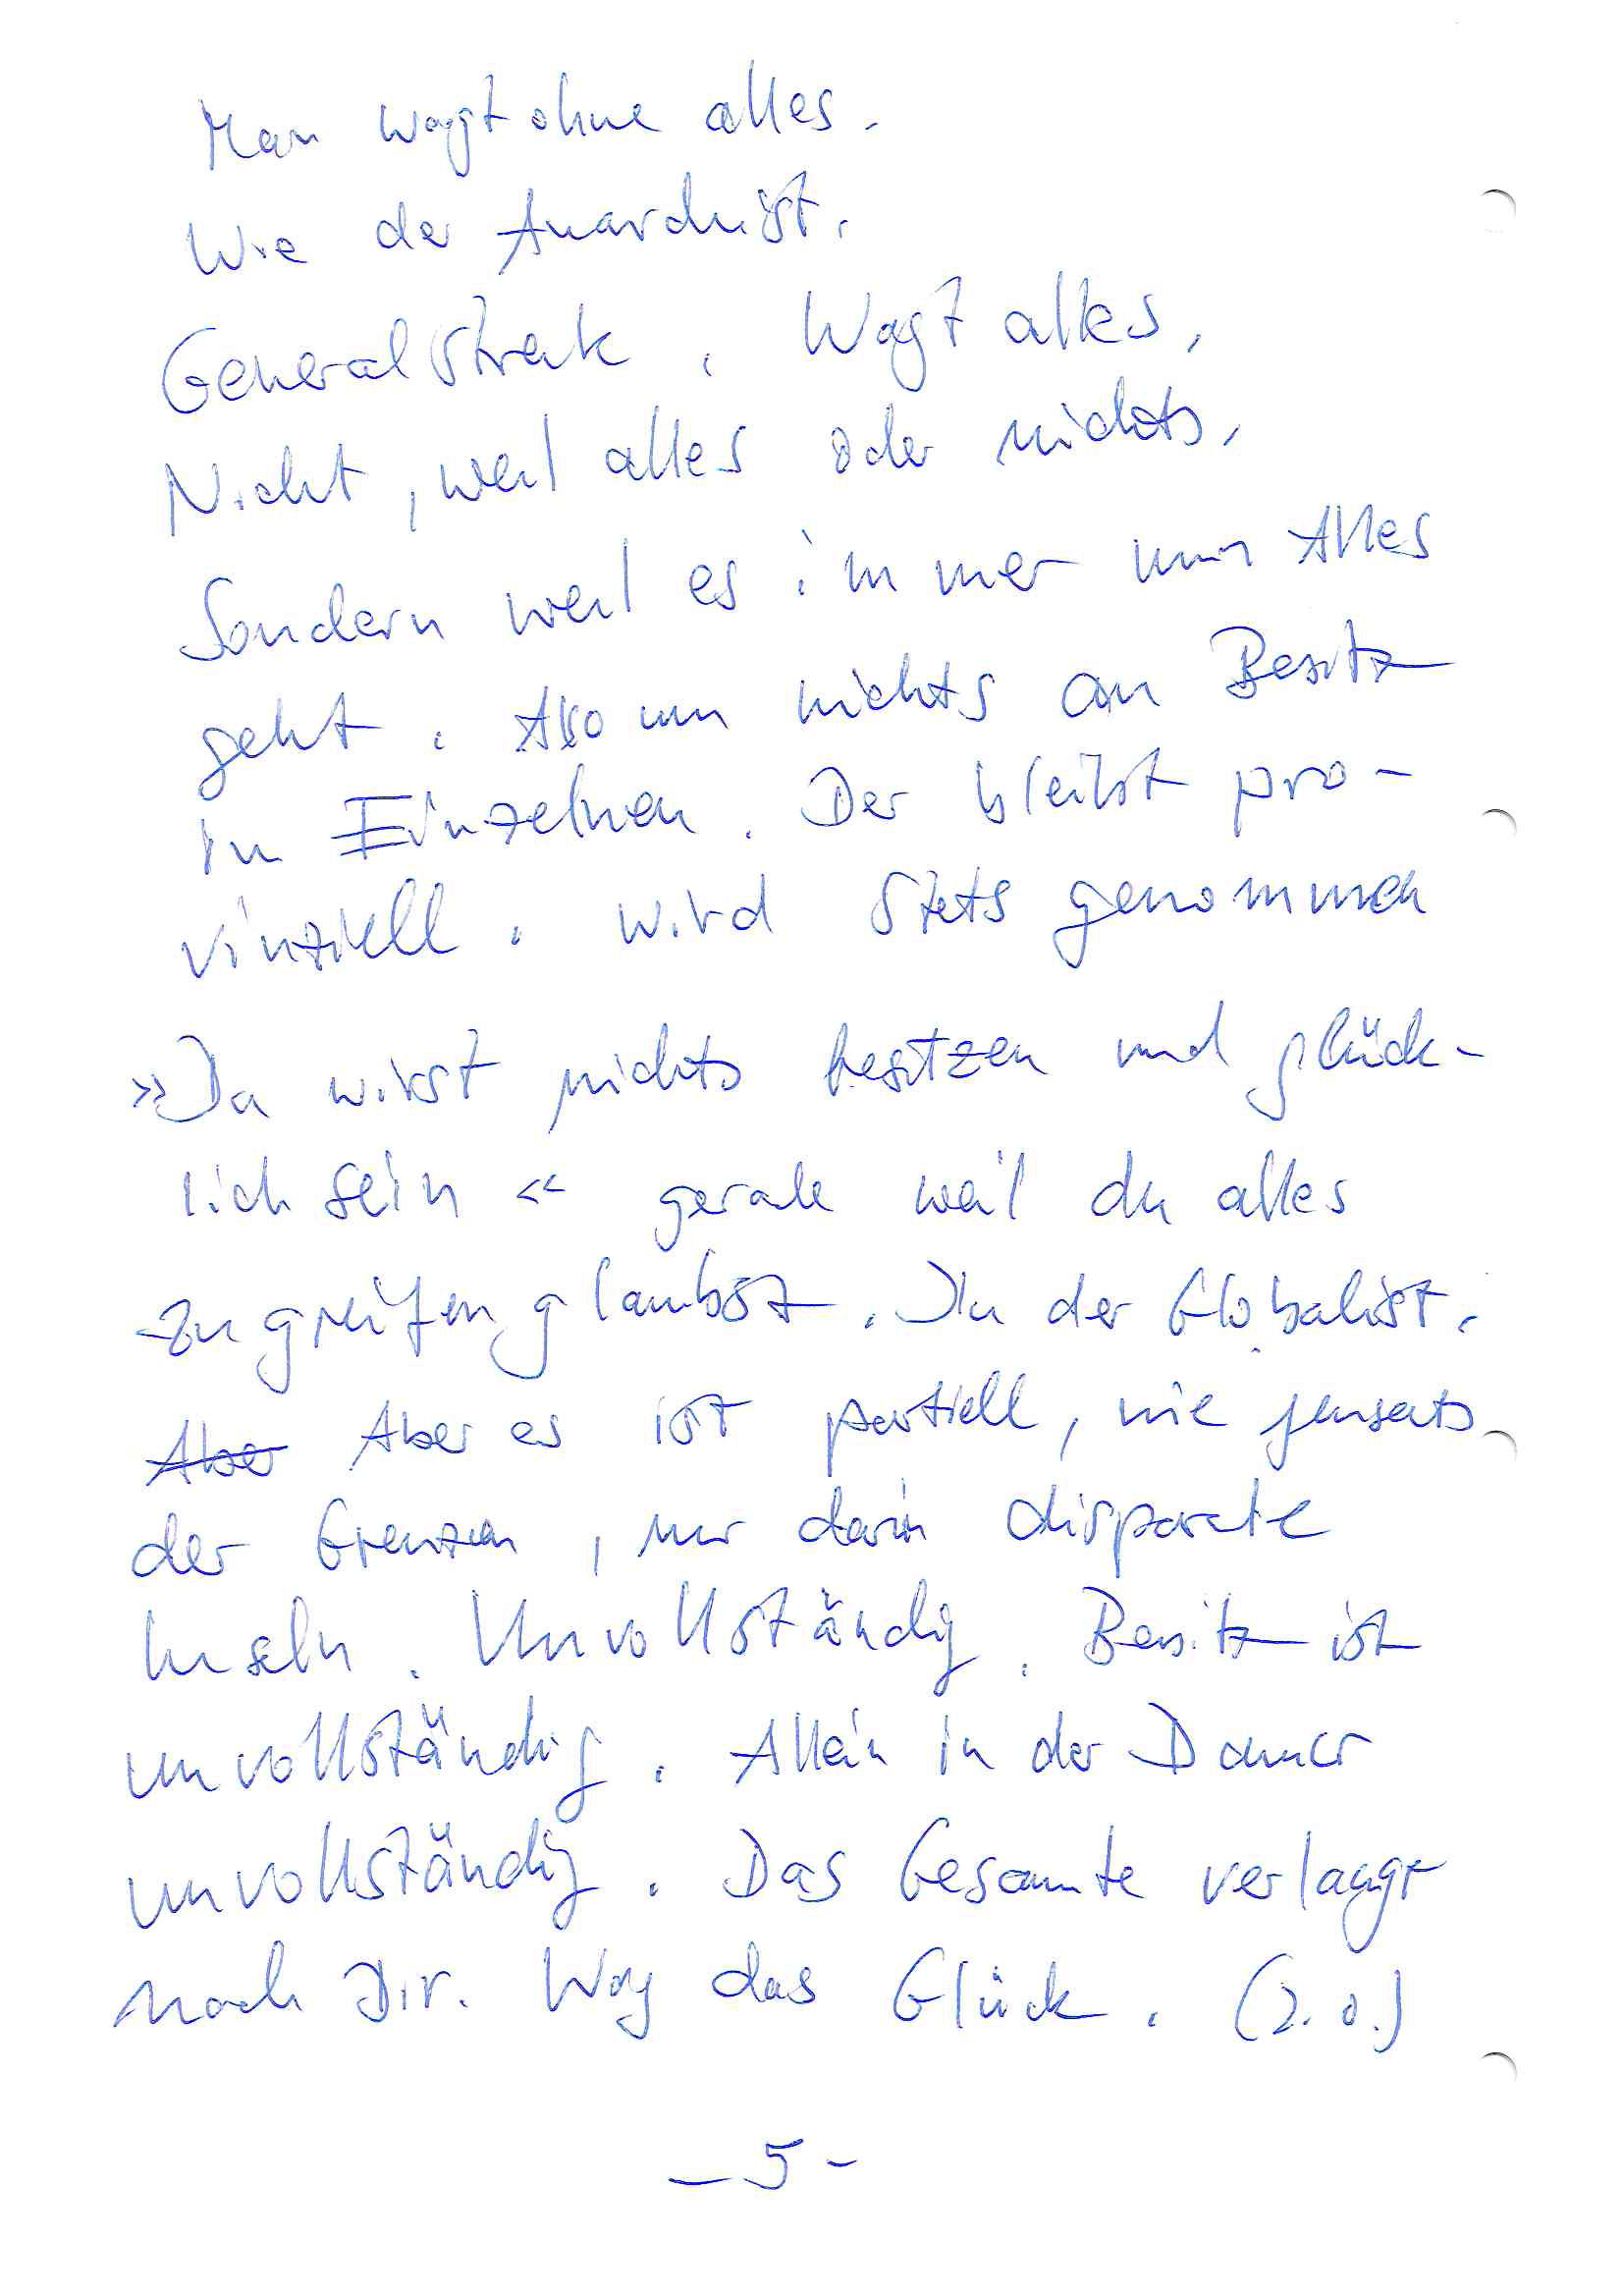 Man wagt ohne alles.
Wie der Anarchist.
Generalstreik. Wagt alles,
Nicht, weil alles oder nichts,
Sondern weil es immer um Alles
geht. Also um nichts an Besitz
im Einzelnen. Der bleibt pro-
vinziell. Wird stets genommen
»Du wirst nichts besitzen und glück-
lich sein« gerade weil du alles
zu greifen glaubst. In der Globalist.
Aber Aber es ist partiell, nie jenseits
der Grenzen, nur darin disparate
Inseln. Unvollständig. Besitz ist
unvollständig. Allein in der Dauer
unvollständig. Das Gesamte verlangt
nach Dir. Wag das Glück. (s.o.)
- 5 -